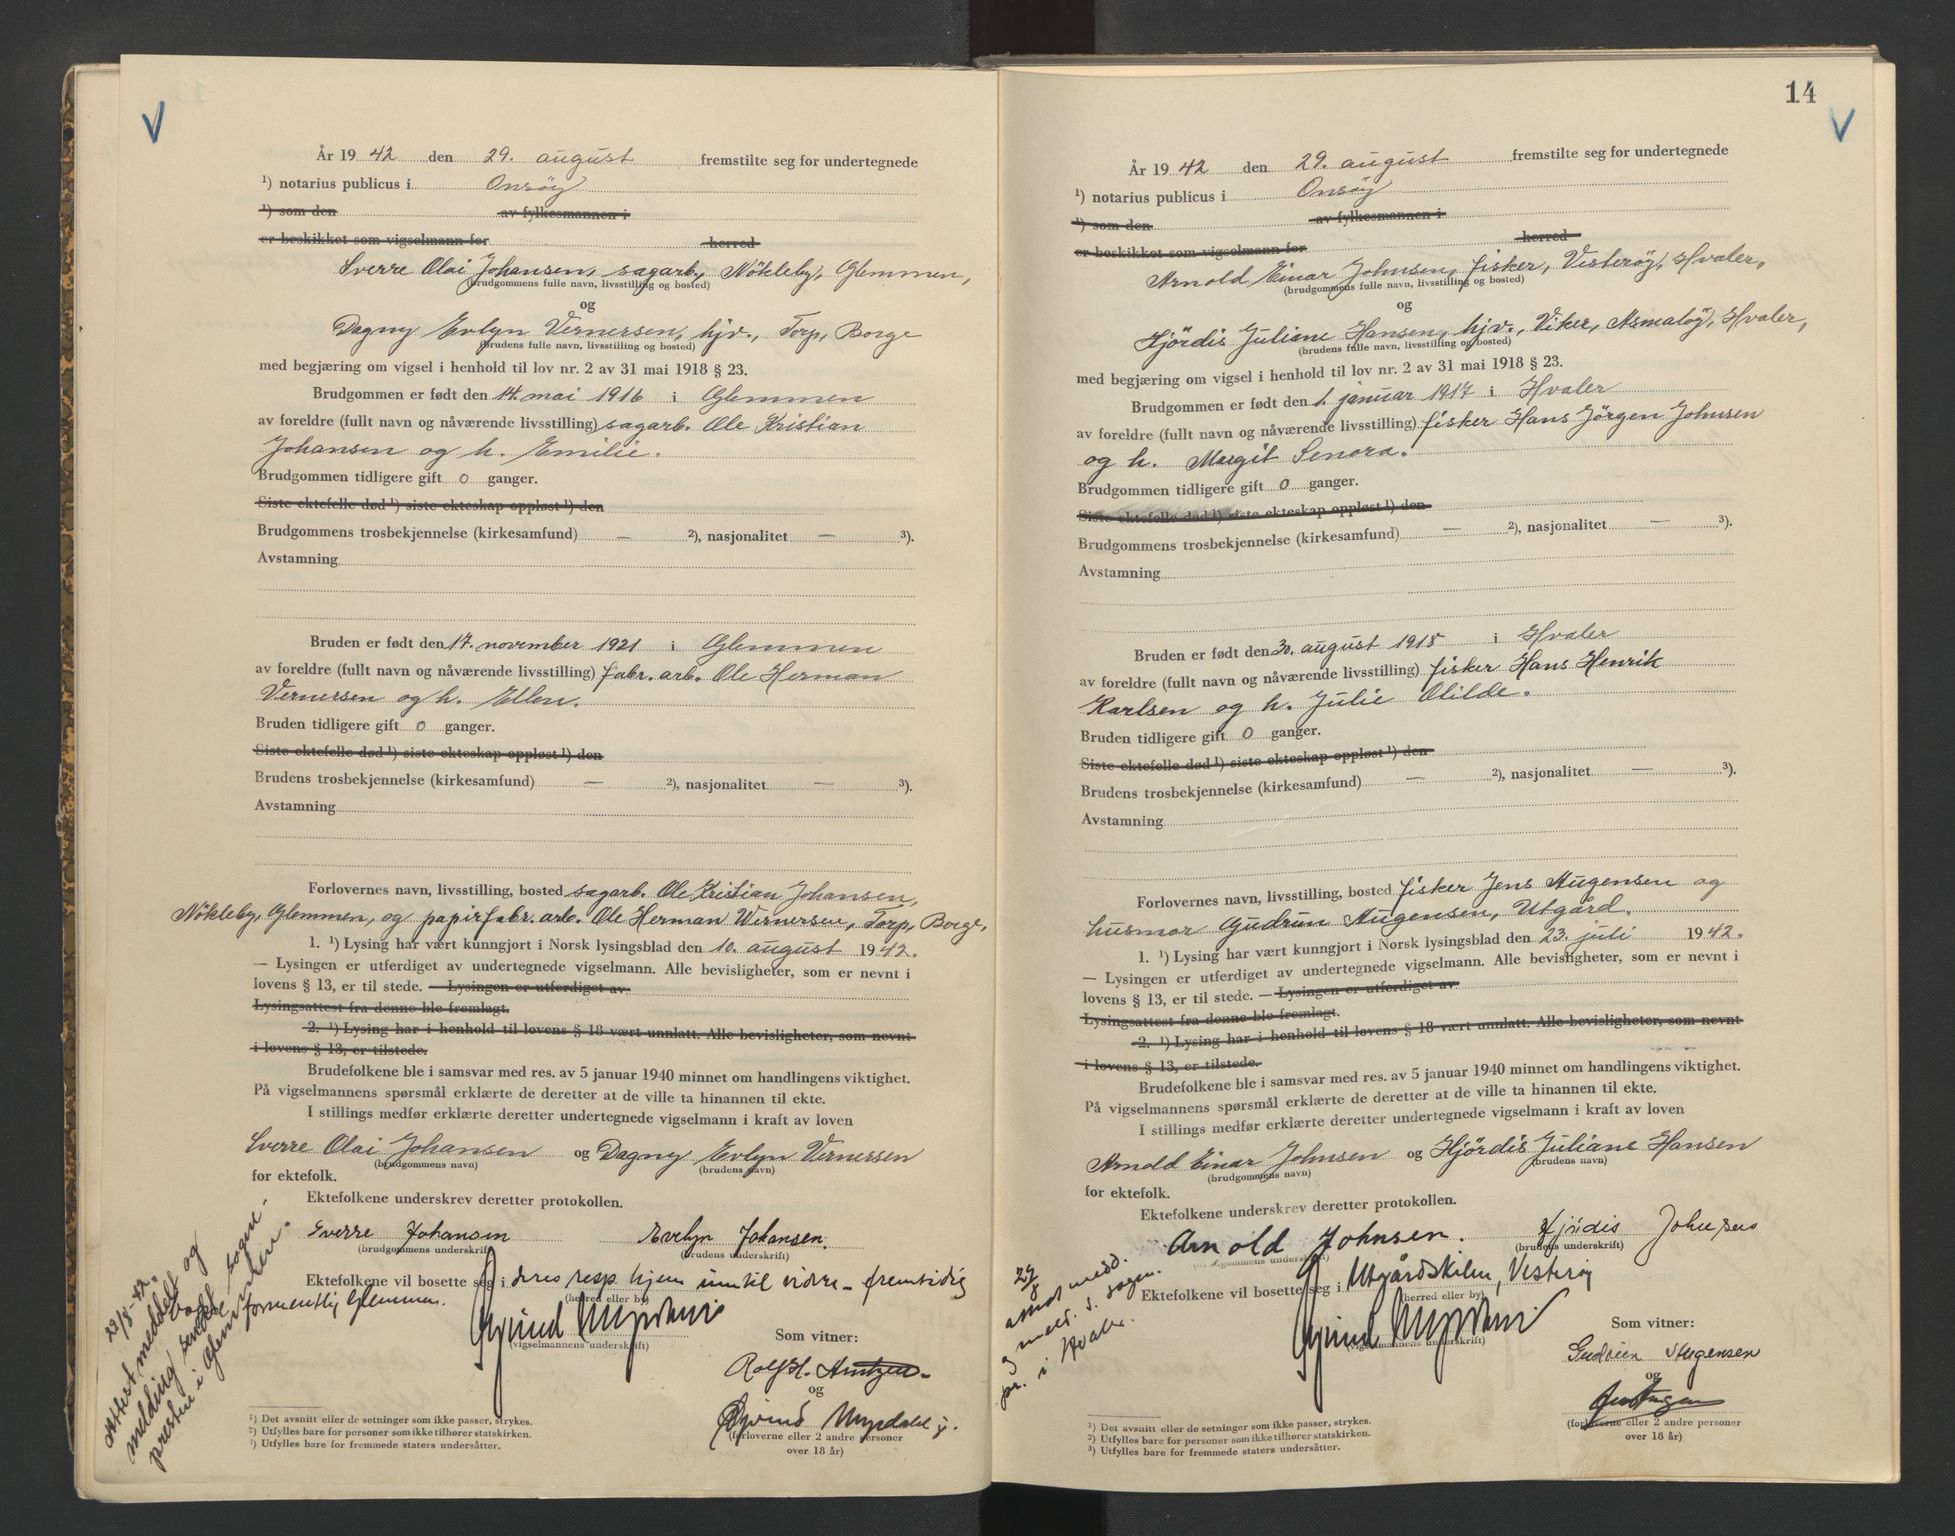 År 19 42 den 29. august fremstilte seg for undertegnede
¹) notarius publicus i Onsöy
¹) som den av fylkesmannen i
er beskikket som vigselmann for herred
Sverre Olai Johansen, sagarb., Nökleby, Glemmen,
(brudgommens fulle navn, livsstilling og bosted)
og
Dagny Evlyn Vernersen, hjv., Torp, Borge
(brudens fulle navn, livsstilling og bosted)
med begjæring om vigsel i henhold til lov nr. 2 av 31 mai 1918 § 23.
Brudgommen er født den 14. mai 1916 i Glemmen
av foreldre (fullt navn og nåværende livsstilling) sagarb. Ole Kristian
Johansen og h. Emilie.
Brudgommen tidligere gift 0 ganger.
Siste ektefelle død ¹) siste ekteskap oppløst ¹) den
Brudgommens trosbekjennelse (kirkesamfund) — ²), nasjonalitet — ³).
Avstamning
Bruden er født den 17. november 1921 i Glemmen
av foreldre (fullt navn og nåværende livsstilling) fabr. arb. Ole Herman
Vernersen og h. Ellen.
Bruden tidligere gift 0 ganger.
Siste ektefelle død ¹) siste ekteskap oppløst ¹) den
Brudens trosbekjennelse (kirkesamfund) — ²), nasjonalitet — ³).
Avstamning
Forlovernes navn, livsstilling, bosted sagarb. Ole Kristian Johansen,
Nökleby, Glemmen, og papirfabr. arb. Ole Herman Wernersen, Torp, Borge,
1. ¹) Lysing har vært kunngjort i Norsk lysingsblad den 10. august 1942.
— Lysingen er utferdiget av undertegnede vigselmann. Alle bevisligheter, som er nevnt i
lovens § 13, er til stede. — Lysingen er utferdiget av
Lysingsattest fra denne ble fremlagt.
2. ¹) Lysing har i henhold til lovens § 18 vært unnlatt. Alle bevisligheter, som nevnt
i lovens § 13, er tilstede.
Brudefolkene ble i samsvar med res. av 5 januar 1940 minnet om handlingens viktighet.
På vigselmannens spørsmål erklærte de deretter at de ville ta hinannen til ekte.
I stillings medfør erklærte deretter undertegnede vigselmann i kraft av loven
Sverre Olai Johansen og Dagny Evlyn Vernersen
(brudgommens navn) (brudens navn)
for ektefolk.
Ektefolkene underskrev deretter protokollen.
Sverre Johansen Evelyn Johansen.
(brudgommens underskrift) (brudens underskrift)
Ektefolkene vil bosette seg i deres resp. hjem inntil videre – fremtidig
(herred eller by)
formentlig Glemmen.
(vigselmannens underskrift)
Som vitner:
Rolf H. Arntzen
og
Øyvind Myrdahl jr.
(forloverne eller 2 andre personer
over 18 år)
¹) Det avsnitt eller de setninger som ikke passer, strykes.
²) Utfylles bare for personer som ikke tilhører statskirken.
³) Utfylles bare for fremmede staters undersåtter.
29/8-42.
Attest meddelt og
melding sendt sogne-
presten i Glemmen.
14
År 19 42 den 29. august fremstilte seg for undertegnede
¹) notarius publicus i Onsöy
¹) som den av fylkesmannen i
er beskikket som vigselmann for herred
Arnold Einar Johnsen, fisker, Vesteröy, Hvaler,
(brudgommens fulle navn, livsstilling og bosted)
og
Hjördis Juliane Hansen, hjv., Viker, Asmalöy, Hvaler,
(brudens fulle navn, livsstilling og bosted)
med begjæring om vigsel i henhold til lov nr. 2 av 31 mai 1918 § 23.
Brudgommen er født den 1. januar 1917 i Hvaler
av foreldre (fullt navn og nåværende livsstilling) fisker Hans Jörgen Johnsen
og h. Margit Senora.
Brudgommen tidligere gift 0 ganger.
Siste ektefelle død ¹) siste ekteskap oppløst ¹) den
Brudgommens trosbekjennelse (kirkesamfund) — ²), nasjonalitet — ³).
Avstamning
Bruden er født den 30. august 1918 i Hvaler
av foreldre (fullt navn og nåværende livsstilling) fisker Hans Henrik
Karlsen og h. Julie Olilde.
Bruden tidligere gift 0 ganger.
Siste ektefelle død ¹) siste ekteskap oppløst ¹) den
Brudens trosbekjennelse (kirkesamfund) — ²), nasjonalitet — ³).
Avstamning
Forlovernes navn, livsstilling, bosted fisker Jens Augensen og
husmor Gudrun Augensen, Utgård.
1. ¹) Lysing har vært kunngjort i Norsk lysingsblad den 23. juli 1942.
— Lysingen er utferdiget av undertegnede vigselmann. Alle bevisligheter, som er nevnt i
lovens § 13, er til stede. — Lysingen er utferdiget av
Lysingsattest fra denne ble fremlagt.
2. ¹) Lysing har i henhold til lovens § 18 vært unnlatt. Alle bevisligheter, som nevnt
i lovens § 13, er tilstede.
Brudefolkene ble i samsvar med res. av 5 januar 1940 minnet om handlingens viktighet.
På vigselmannens spørsmål erklærte de deretter at de ville ta hinannen til ekte.
I stillings medfør erklærte deretter undertegnede vigselmann i kraft av loven
Arnold Einar Johnsen og Hjördis Juliane Hansen
(brudgommens navn) (brudens navn)
for ektefolk.
Ektefolkene underskrev deretter protokollen.
Arnold Johnsen. Hjördis Johnsen
(brudgommens underskrift) (brudens underskrift)
Ektefolkene vil bosette seg i Utgårdskilen, Vesterøy
(herred eller by)
(vigselmannens underskrift)
Som vitner:
Gudrun Augensen
og
(forloverne eller 2 andre personer
over 18 år)
¹) Det avsnitt eller de setninger som ikke passer, strykes.
²) Utfylles bare for personer som ikke tilhører statskirken.
³) Utfylles bare for fremmede staters undersåtter.
29/8
attest medd.
og meld. s. sogn.
pr. i Hvaler.